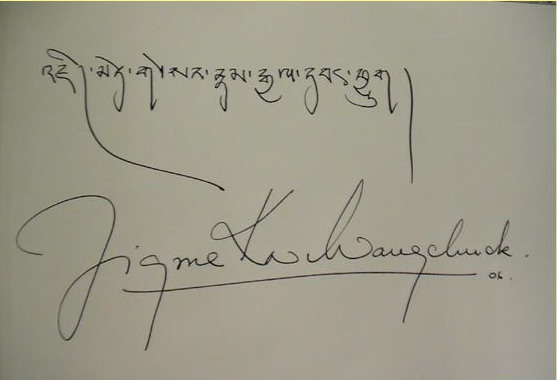 འཇིགས་མེད་གེ་སར་རྣམ་རྒྱལ་དབང་ཕྱུག།
Jigme KN Wangchuck.
06.